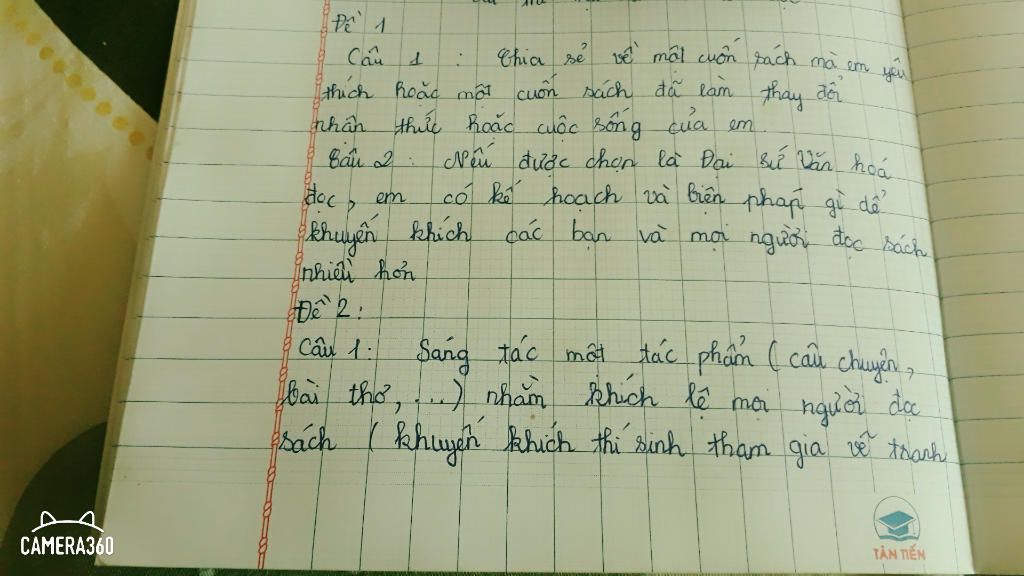 Đề 1
Câu 1 : Chia sẻ về một cuốn sách mà em yêu
thích hoặc một cuốn sách đã làm thay đổi
nhận thức hoặc cuộc sống của em.
Câu 2 : Nếu được chọn là Đại sứ Văn hoá
đọc, em có kế hoạch và biện pháp gì để
khuyến khích các bạn và mọi người đọc sách
nhiều hơn
Đề 2 :
Câu 1 : Sáng tác một tác phẩm ( câu chuyện,
bài thơ, ...) nhằm khích lệ mọi người đọc
sách ( khuyến khích thí sinh tham gia vẽ tranh
TÂN TIẾN
CAMERA360